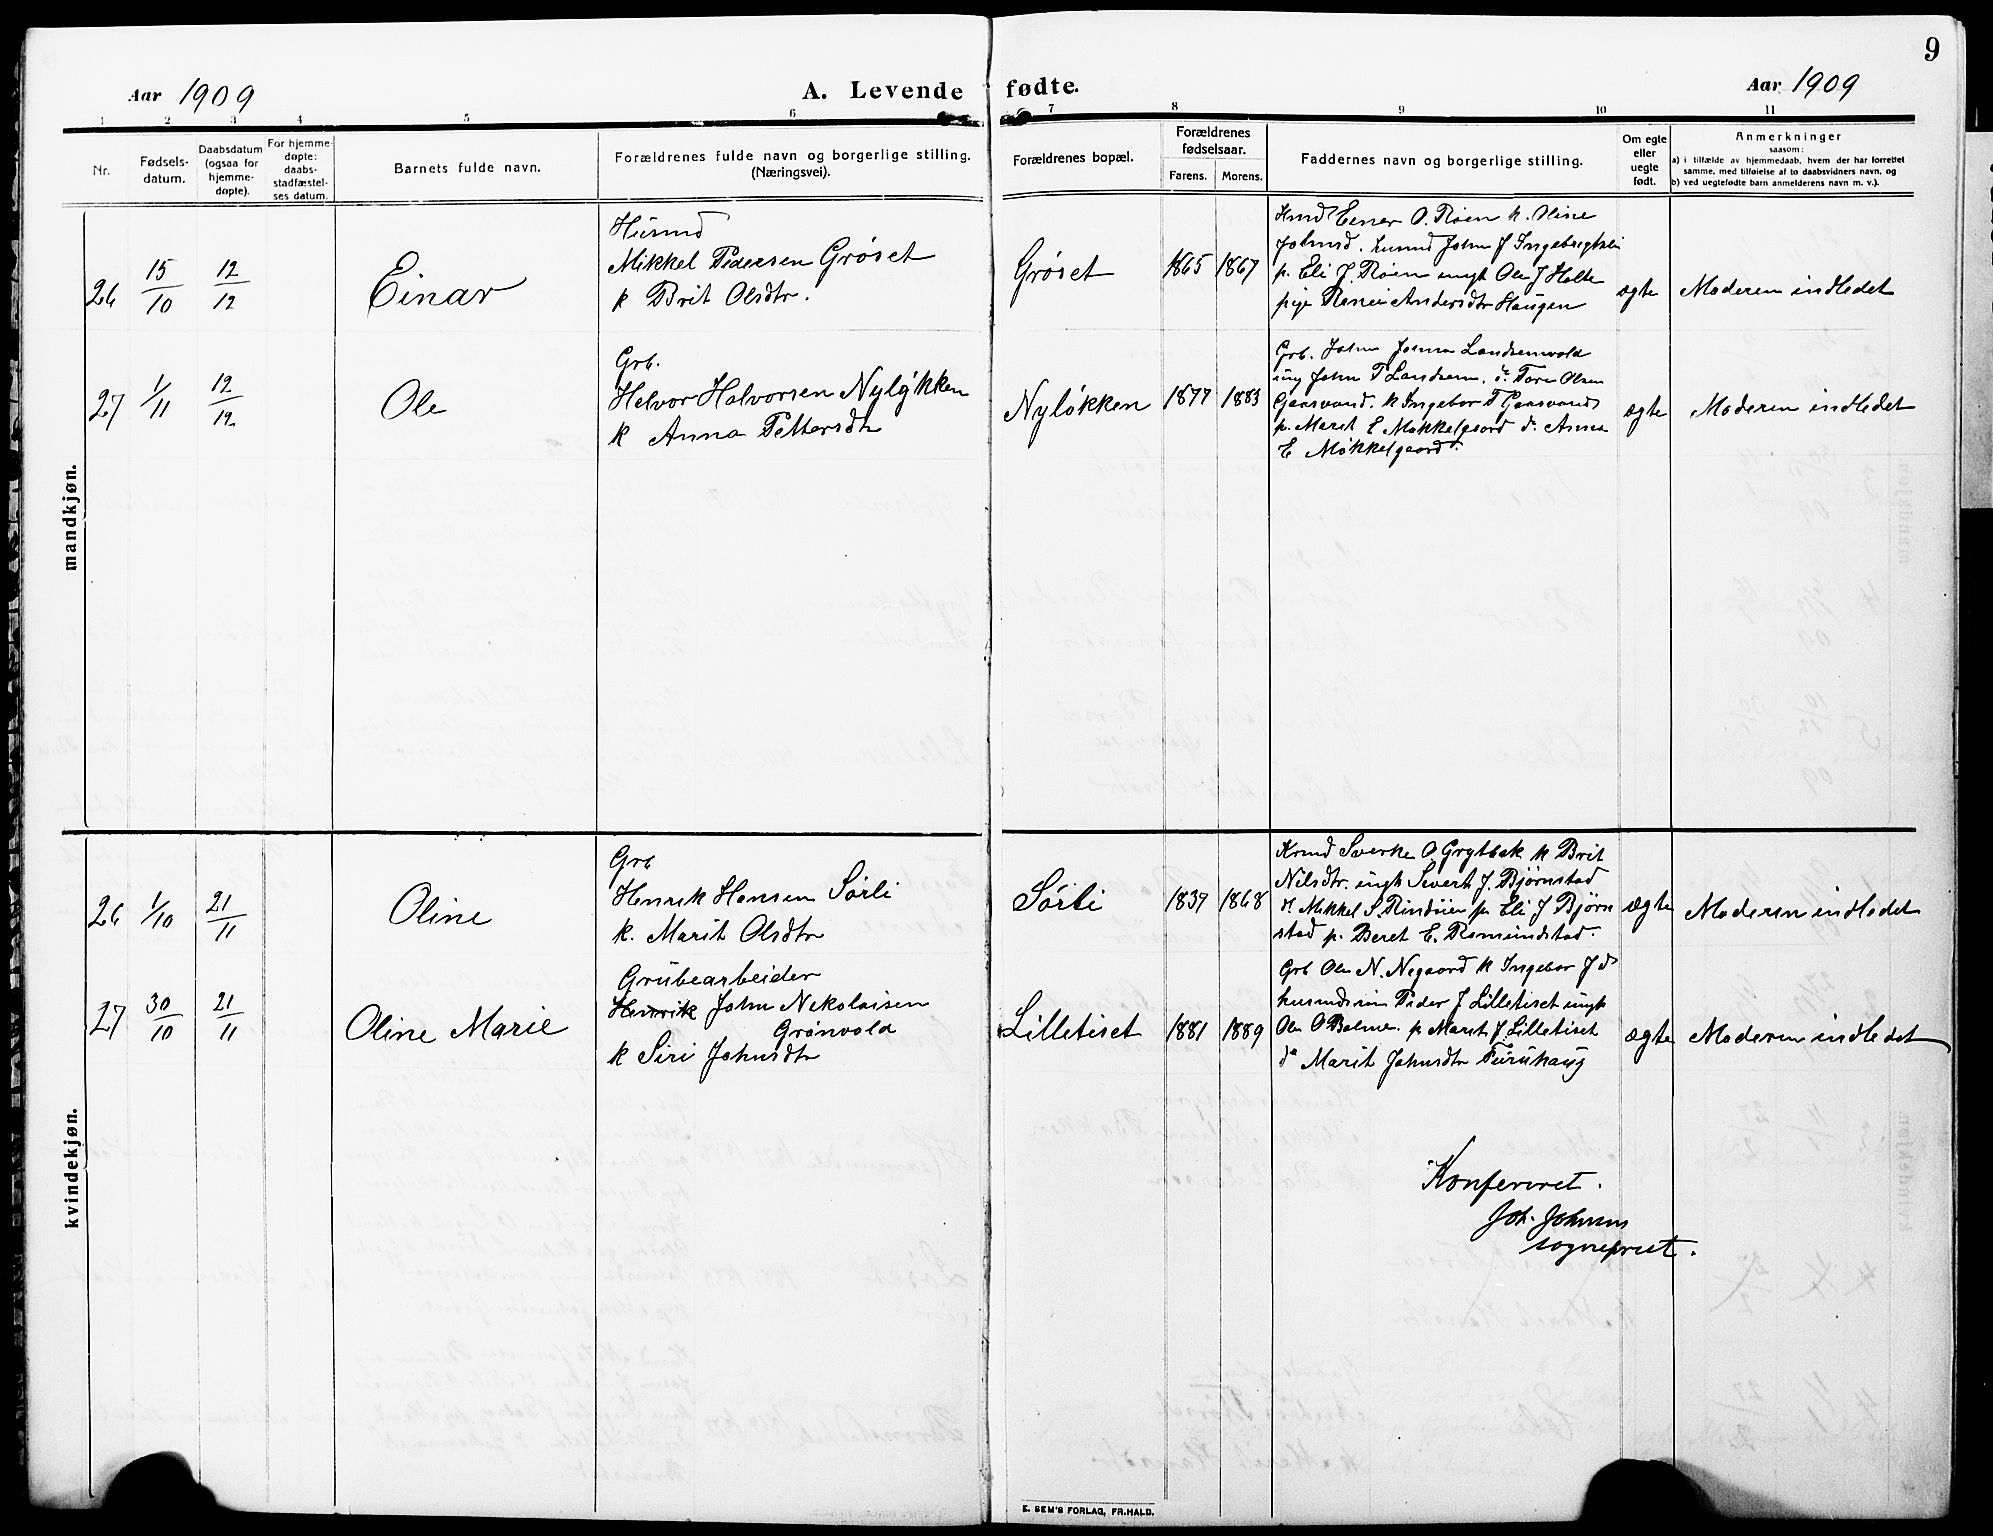 9
Aar 1909
A. Levende fødte.
Aar 1909
1 2 3 4 5 6 7 8 9 10 11
Nr.
Fødsels-
datum.
Daabsdatum
(ogsaa for
hjemme-
døpte).
For hjemme-
døpte:
daabs-
stadfæstel-
ses datum.
Barnets fulde navn.
Forældrenes fulde navn og borgerlige stilling.
(Næringsvei).
Forældrenes bopæl.
Forældrenes
fødselsaar.
Farens. Morens.
Faddernes navn og borgerlige stilling.
Om egte
eller
uegte
født.
Anmerkninger
saasom:
a) i tilfælde av hjemmedaab, hvem der har forrettet
samme, med tilføielse af to daabsvidners navn, og
b) ved uegtefødte barn anmelderens navn m. v.).
mandkjøn.
26 15/10 12/12 Einar
Husmd
Mikkel Pedersen Grøset
k Brit Olsdtr.
Grøset 1865 1867
Kmd Einar O. Røen k. Oline
Johnsd. husmd John J Ingebrigtsli
p. Eli J. Røen ungk Ole J Holte
pige Andersdtr Haugen
ægte Moderen indledet
27 1/11 12/12 Ole
Grb.
Halvor Halvorsen Nyløkken
k Anna Pettersdtr
Nyløkken 1877 1883
Grb. John Landsemvold
ung John T Landsem. do Tore Olsen
Gaasvand. k Ingebor T Gaasvand
p. Marit E Møkkelgaard do Anna
E Møkkelgaard.
ægte Moderen indledet
kvindekjøn.
26 1/10 21/11 Oline
Grb
Henrik Hansen Sørli
k. Marit Olsdtr
Sørli 1837 1868
Kmd Sverke O. Grytbak k Brit
Nilsdtr. ungk Sivert J. Bjørnstad
do Mikkel S. p Eli J Bjørn
stad p. Beret E. Romundstad.
ægte Moderen indledet
27 30/10 21/11 Oline Marie
Grubearbeider
Henrik John Nikolaisen
Grønvold
k Siri Johnsdtr
Lilletiset 1881 1889
Grb Ole N. Negaard k Ingebor J d
Peder J Lilletiset ungk
Ole O Bolme. p. Marit J. Lilletiset
do Marit Johnsdtr Furuhaug
ægte Moderen indledet
Konfereret.
Joh. Johnsen
sogneprest.
E. SEM'S FORLAG, FR.HALD.